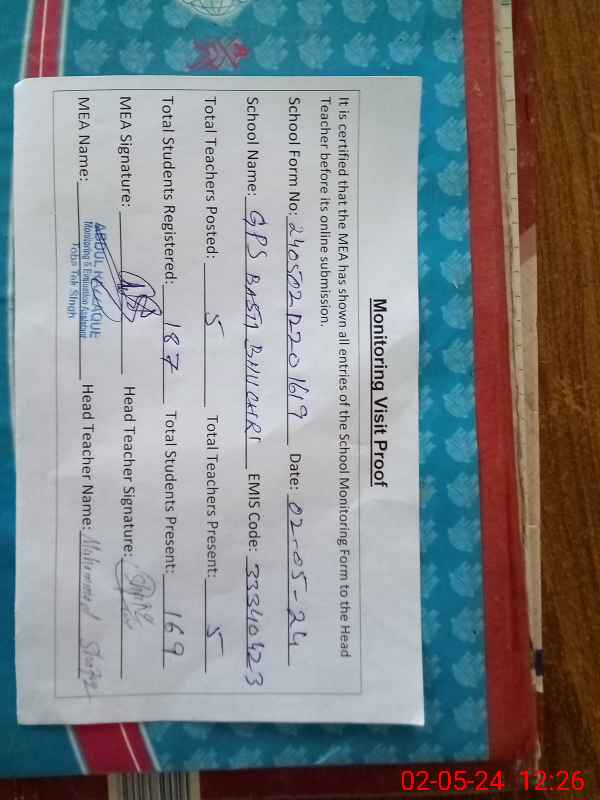 Monitoring Visit Proof
It is certified that the MEA has shown all entries of the School Monitoring Form to the Head
Teacher before its online submission.
School Form No: 24050212201619 Date: 02-05-24
School Name: GPS BASTI EMIS Code: 33340423
Total Teachers Posted: 5 Total Teachers Present: 5
Total Students Registered: 187 Total Students Present: 169
MEA Signature: Head Teacher Signature:
MEA Name: ABDUL Head Teacher Name: Muhammad
Monitoring & Evaluation Assistant
Toba Tek Singh
02-05-24 12:26